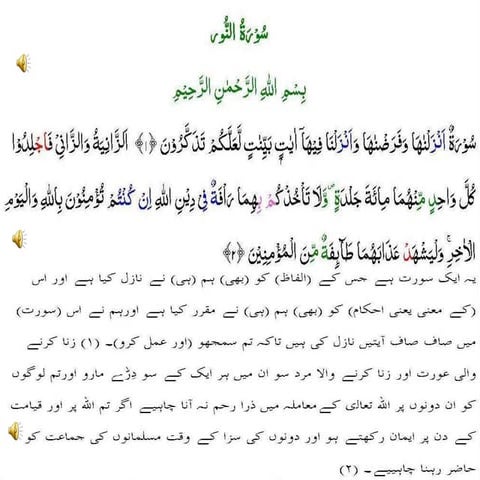 سُوْرَةُ النُّور
بِسْمِ اللهِ الرَّحْمٰنِ الرَّحِيْمِ
سُوْرَةٌ اَنْزَلْنٰهَا وَفَرَضْنٰهَا وَاَنْزَلْنَا فِيْهَآ اٰيٰتٍۭ بَيِّنٰتٍ لَّعَلَّكُمْ تَذَكَّرُوْنَ ﴿۱﴾ اَلزَّانِيَةُ وَالزَّانِيْ فَاجْلِدُوْا
كُلَّ وَاحِدٍ مِّنْهُمَا مِائَةَ جَلْدَةٍ ۠ وَّلَا تَاْخُذْكُمْ بِهِمَا رَاْفَةٌ فِيْ دِيْنِ اللهِ اِنْ كُنْتُمْ تُؤْمِنُوْنَ بِاللهِ وَالْيَوْمِ
الْاٰخِرِ ۚ وَلْيَشْهَدْ عَذَابَهُمَا طَآئِفَةٌ مِّنَ الْمُؤْمِنِيْنَ ﴿۲﴾
یہ ایک سورت ہے جس کے (الفاظ) کو (بھی) ہم (ہی) نے نازل کیا ہے اور اس
(کے معنی یعنی احکام) کو (بھی) ہم (ہی) نے مقرر کیا ہے اورہم نے اس (سورت)
میں صاف صاف آیتیں نازل کی ہیں تاکہ تم سمجھو (اور عمل کرو)۔ (۱) زنا کرنے
والی عورت اور زنا کرنے والا مرد سو ان میں ہر ایک کے سو دِرّے مارو اورتم لوگوں
کو ان دونوں پر اللہ تعالیٰ کے معاملہ میں ذرا رحم نہ آنا چاہیے اگر تم اللہ پر اور قیامت
کے دن پر ایمان رکھتے ہو اور دونوں کی سزا کے وقت مسلمانوں کی جماعت کو
حاضر رہنا چاہییے۔ (۲)